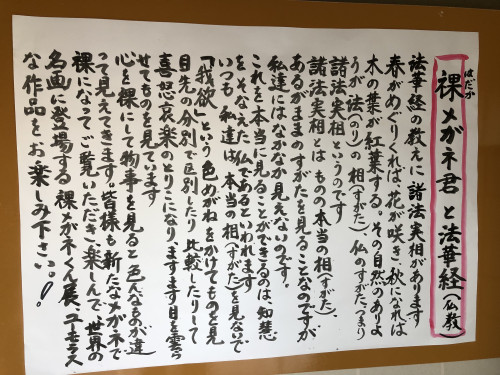 はだか
裸メガネ君と法華経(仏教)
法華経の教えに諸法実相があります
春がめぐりくれば花が咲き、秋になれば
木の葉が紅葉する。その自然のありよ
うが法(のり)の相(すがた)仏のすがた、つまり
諸法実相というのです
諸法実相とはものの本当の相(すがた)、
あるがままのすがたを見ることなのですが
私達にはなかなか見えないのです。
これを本当に見ることができるのは、知慧
をそなえた仏であるといわれます
いつも私達は、本当の相(すがた)を見ないで
「我欲」という色めがねをかけてものを見
目先の分別で区別したり比較したりして
喜怒哀楽のとりこになり、ますます目を雲ら
せてものを見ています
心を裸にして物事を見ると色んなものが違
って見えてきます。皆様も新たなメガネで
裸になってご覧いただき、楽しんで世界の
名画に登場する裸メガネくん展、ユーモラス
な作品をお楽しみ下さい。!